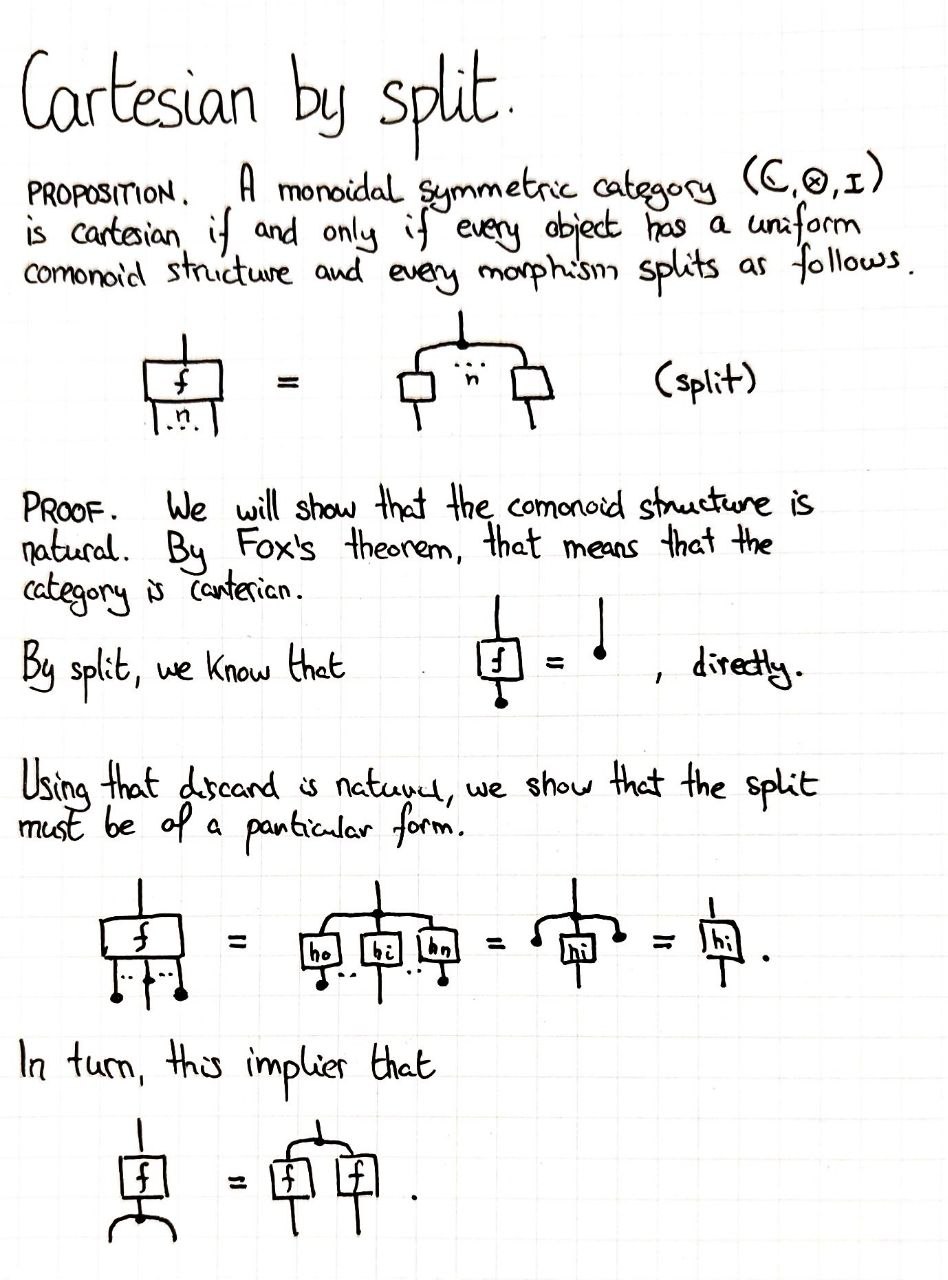 Cartesian by split.
PROPOSITION. A monoidal symmetric category (ℂ,⊗,I)
is cartesian if and only if every object has a uniform
comonoid structure and every morphism splits as follows.
f = ... n (split)
n
...
PROOF. We will show that the comonoid structure is
natural. By Fox's theorem, that means that the
category is canterian.
By split, we know that f = , directly.
Using that discand is natural, we show that the split
must be of a panticular form.
f = h0 hi hn = hi = hi .
.. .. .. ..
In turn, this implier that
f = f f .